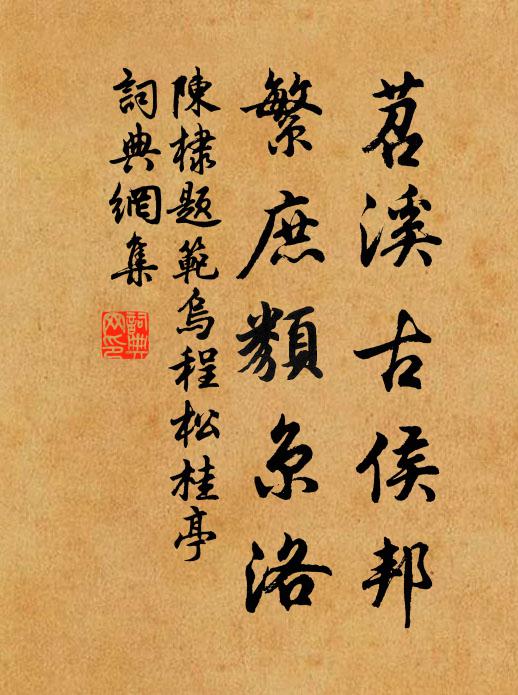 苕溪古侯邦
繁庶類京洛
陳棣題範烏程松桂亭
詞典網集
詞典
网印